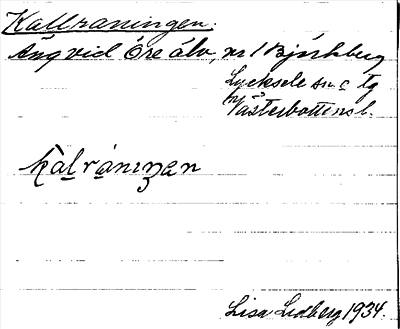 Kallraningen.
Äng vid Öre älv, nr 1 Björkberg
Lycksele sn. o tg
Västerbottensl.
kalråniŋən
Lisa Lidberg 1934.